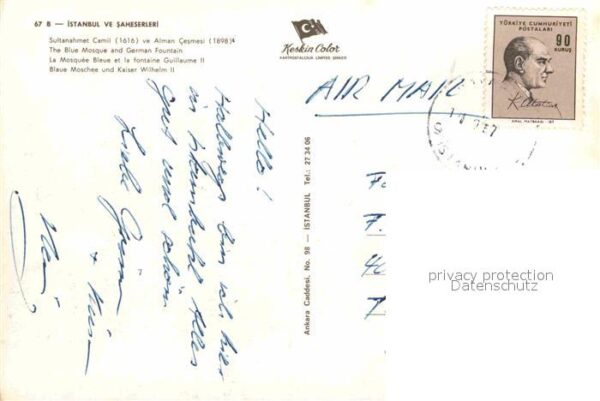 67 B — İSTANBUL VE ŞAHESERLERİ
Sultanahmet Camii (1616) ve Alman Çeşmesi (1898)
The Blue Mosque and German Fountain
La Mosquée Bleue et la fontaine Guillaume II
Blaue Moschee und Kaiser Wilhelm II
Keskin Color
KARTPOSTALCILIK LİMİTED ŞİRKETİ
Ankara Caddesi, No. 98 — İSTANBUL Tel.: 27 34 06
TÜRKİYE CUMHURİYETİ
POSTALARI
90
KURUŞ
K. Atatürk
AIR MAIL
Hello!
Halbwegs bin ich hier
in Istanbul. Alles
gut und schön
Liebe
7.
privacy protection
Datenschutz